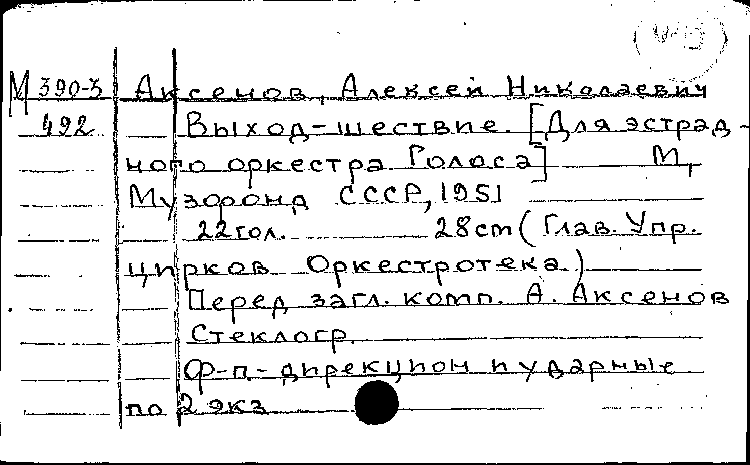 М 390-3 Аксенов, Алексей Николаевич
492 Выход-шествие. [Для эстрад-
ного оркестра Голоса] М.,
Музфонд СССР, 1951
22 гол. 28 cm (Глав. Упр.
цирков Оркестротека)
Перед загл. комп. А. Аксенов
Стеклогр.
Ф-п.-дирекцион и ударные
по 2 экз